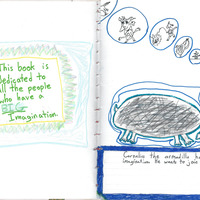 This book is
dedicated to
all the people
who have a
BIG
Imagination.
Cornelius the armadillo had
imagination. He wants to join